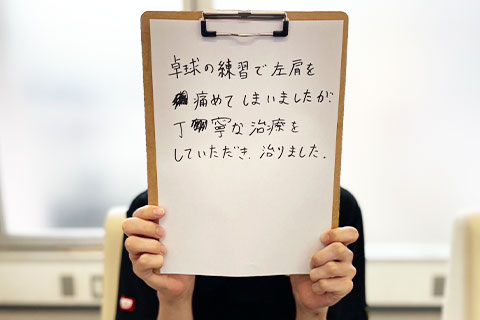 卓球の練習で左肩を
痛めてしまいましたが、
丁寧な治療を
していただき、治りました。